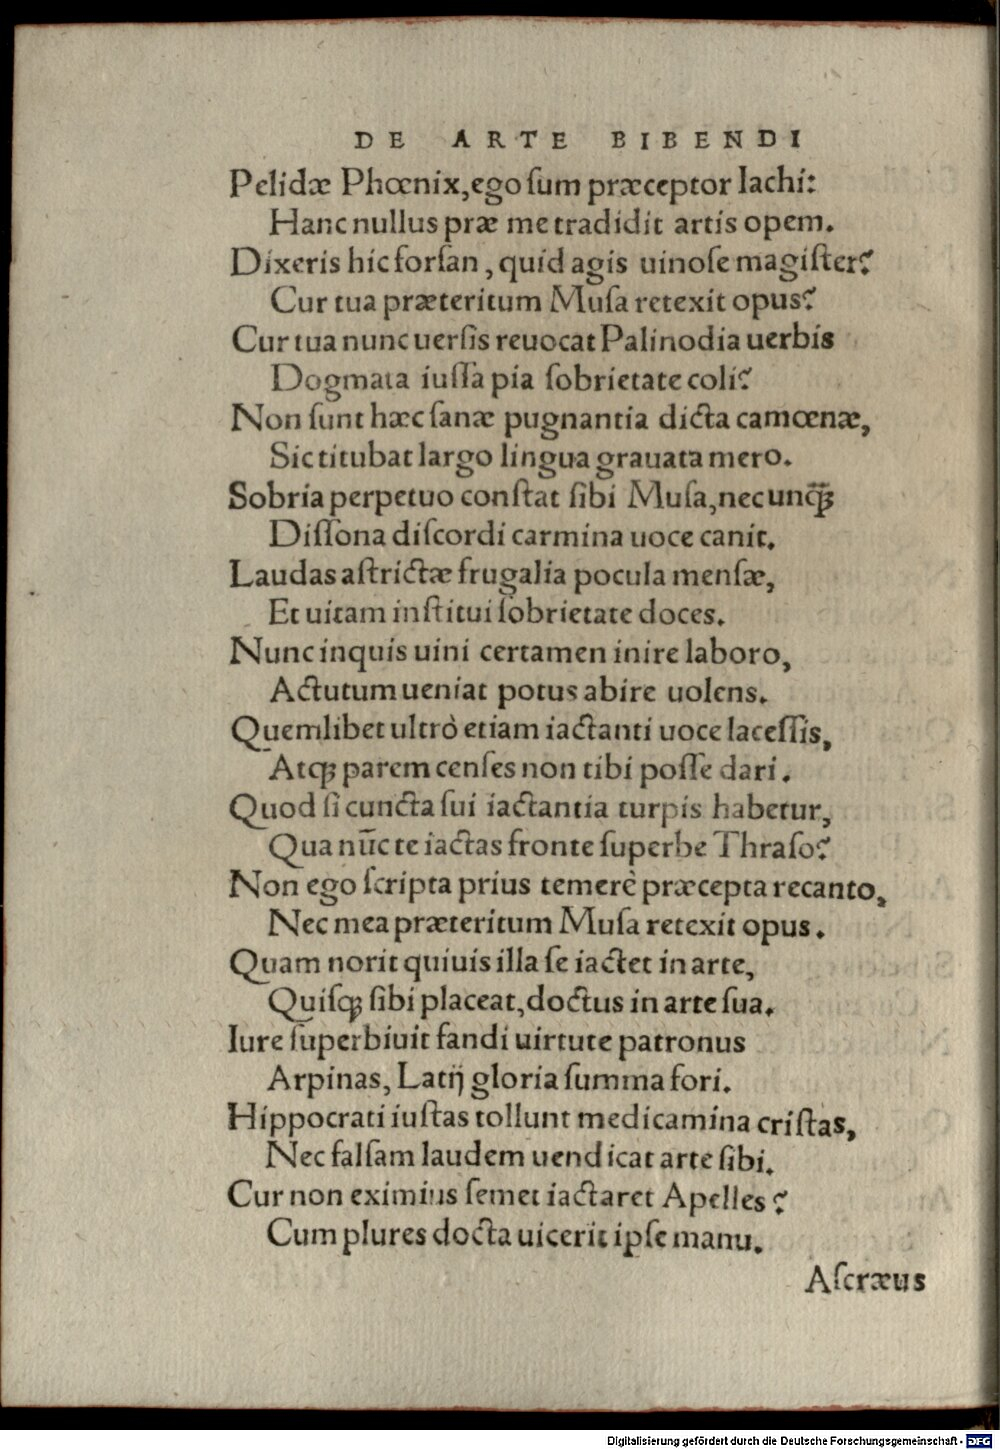 DE ARTE BIBENDI
Pelidæ Phœnix, ego ſum præceptor Iachi:
Hanc nullus præ me tradidit artis opem.
Dixeris hic forſan, quid agis uinoſe magiſter?
Cur tua præteritum Muſa retexit opus?
Cur tua nunc uerſis reuocat Palinodia uerbis
Dogmata iuſſa pia ſobrietate coli?
Non ſunt hæc ſanæ pugnantia dicta camœnæ,
Sic titubat largo lingua grauata mero.
Sobria perpetuo conſtat ſibi Muſa, nec unq̃ꝫ
Diſſona diſcordi carmina uoce canit.
Laudas aſtrictæ frugalia pocula menſæ,
Et uitam inſtitui ſobrietate doces.
Nunc inquis uini certamen inire laboro,
Actutum ueniat potus abire uolens.
Quemlibet ultrò etiam iactanti uoce laceſſis,
Atqꝫ parem cenſes non tibi poſſe dari.
Quod ſi cuncta ſui iactantia turpis habetur,
Qua nũc te iactas fronte ſuperbe Thraſo?
Non ego ſcripta prius temerè præcepta recanto,
Nec mea præteritum Muſa retexit opus.
Quam norit quiuis illa ſe iactet in arte,
Quiſqꝫ ſibi placeat, doctus in arte ſua.
Iure ſuperbiuit fandi uirtute patronus
Arpinas, Latij gloria ſumma fori.
Hippocrati iuſtas tollunt medicamina criſtas,
Nec falſam laudem uendicat arte ſibi.
Cur non eximius ſemet iactaret Apelles?
Cum plures docta uicerit ipſe manu.
Aſcræus
Digitalisierung gefördert durch die Deutsche Forschungsgemeinschaft - DFG